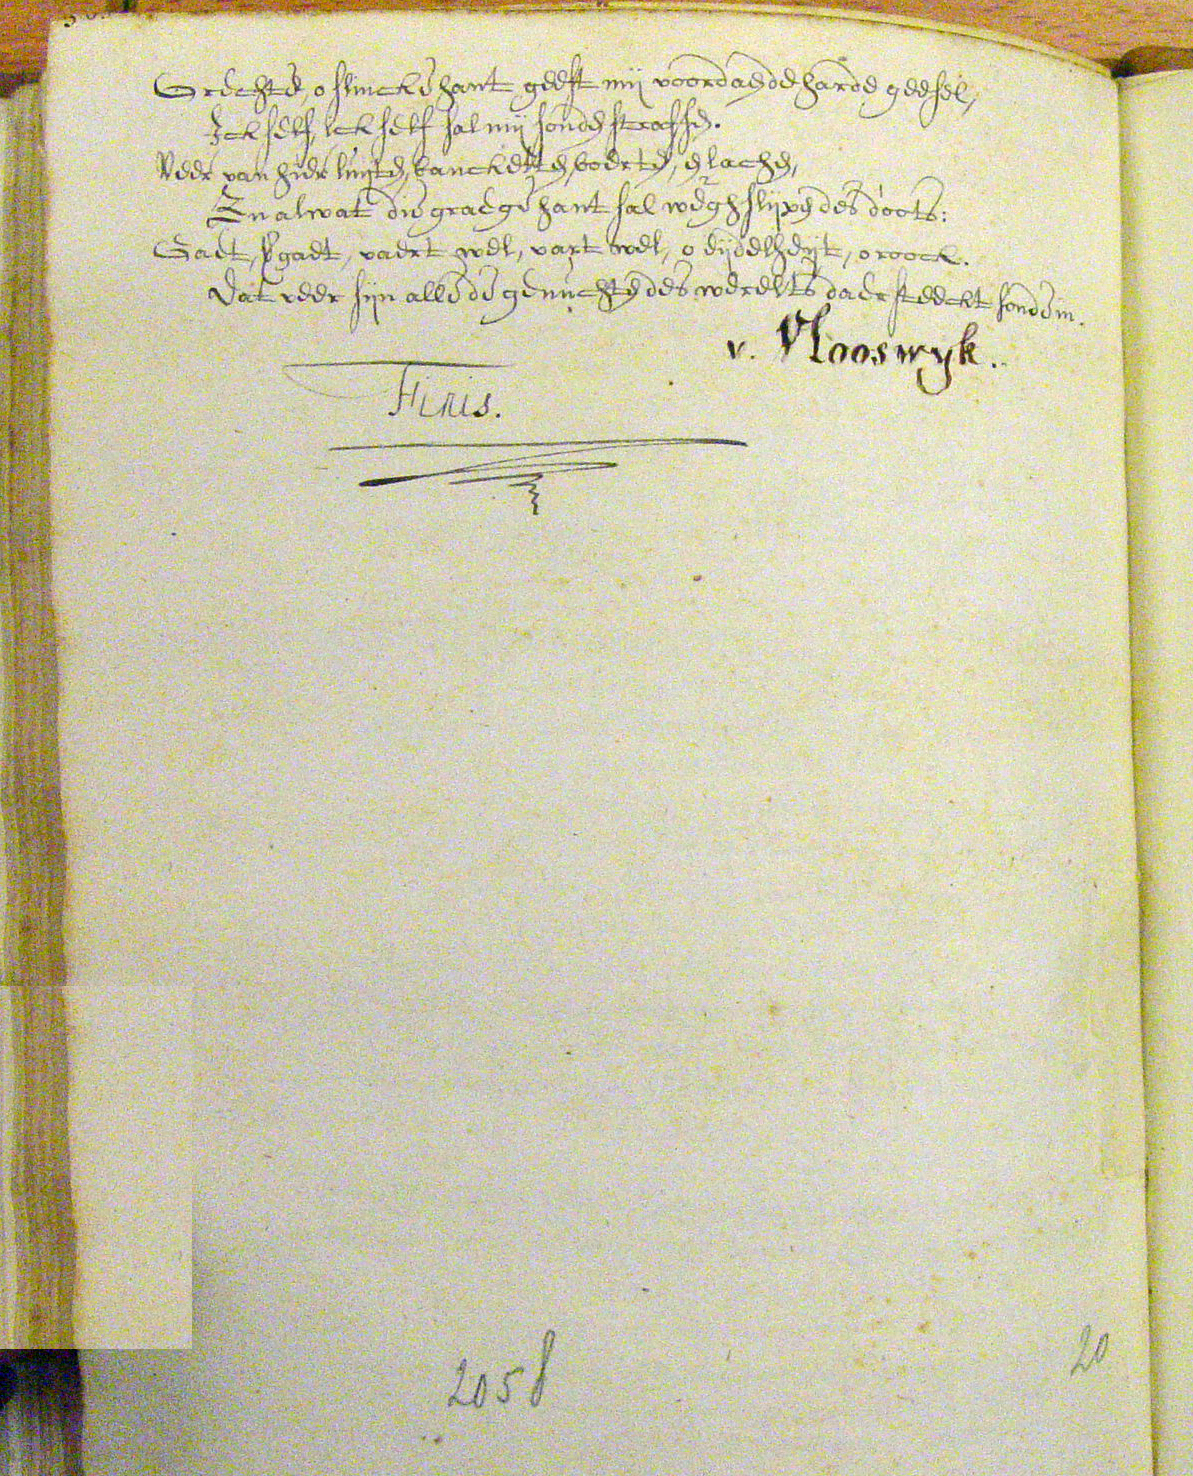 Grechte, o slincke hant geeft mij voordaen de harde geesel,
Ick self, Ick self sal mij sonden straffen.
Veer van hier lusten, bancketten, boerten, en lachen,
En al wat die graege hant sal wegh slijpen des doots:
Gaet, gaet, vaert wel, vart wel, o eijdelheijt, o roock.
Dat veer sijn alle de genuchten des werelts daer steeckt sonde in.
v. Vlooswyk.
Finis.
2058
20